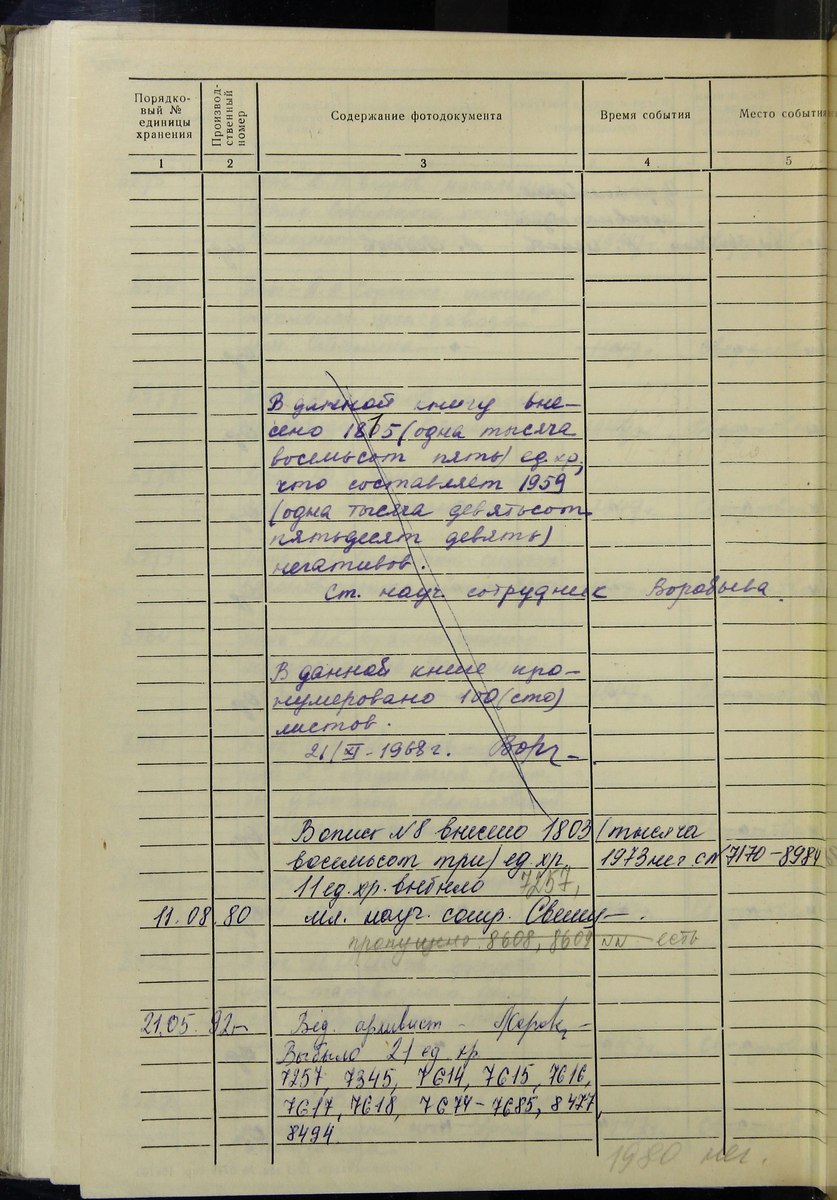 Порядко-
вый №
единицы
хранения
Производ-
ственный
номер
Содержание фотодокумента
Время события
Место события
1 2 3 4 5
В данной книгу вне-
сено 1805 (одна тысяча
восемьсот пять) ед. хр,
что составляет 1959
(одна тысяча девятьсот
пятьдесят девять)
негативов.
Ст. науч. сотрудник Воробьева.
В данной книге про-
нумеровано 100 (сто)
листов.
21/XI-1968 г.
В опись N8 внесено 1803 (тысяча
восемьсот три) ед. хр. 1973 нег. с N 7170-8984
11 ед. хр. выбыло 7257,
11.08.80 мл. науч. сотр.
пропущено 8608, 8609 NN есть
21.05.92 Вед. архивист -
Выбыло 21 ед. хр
7257, 7345, 7614, 7615, 7616,
7617, 7618, 7674-7685, 8477,
8494.
1980 нег.